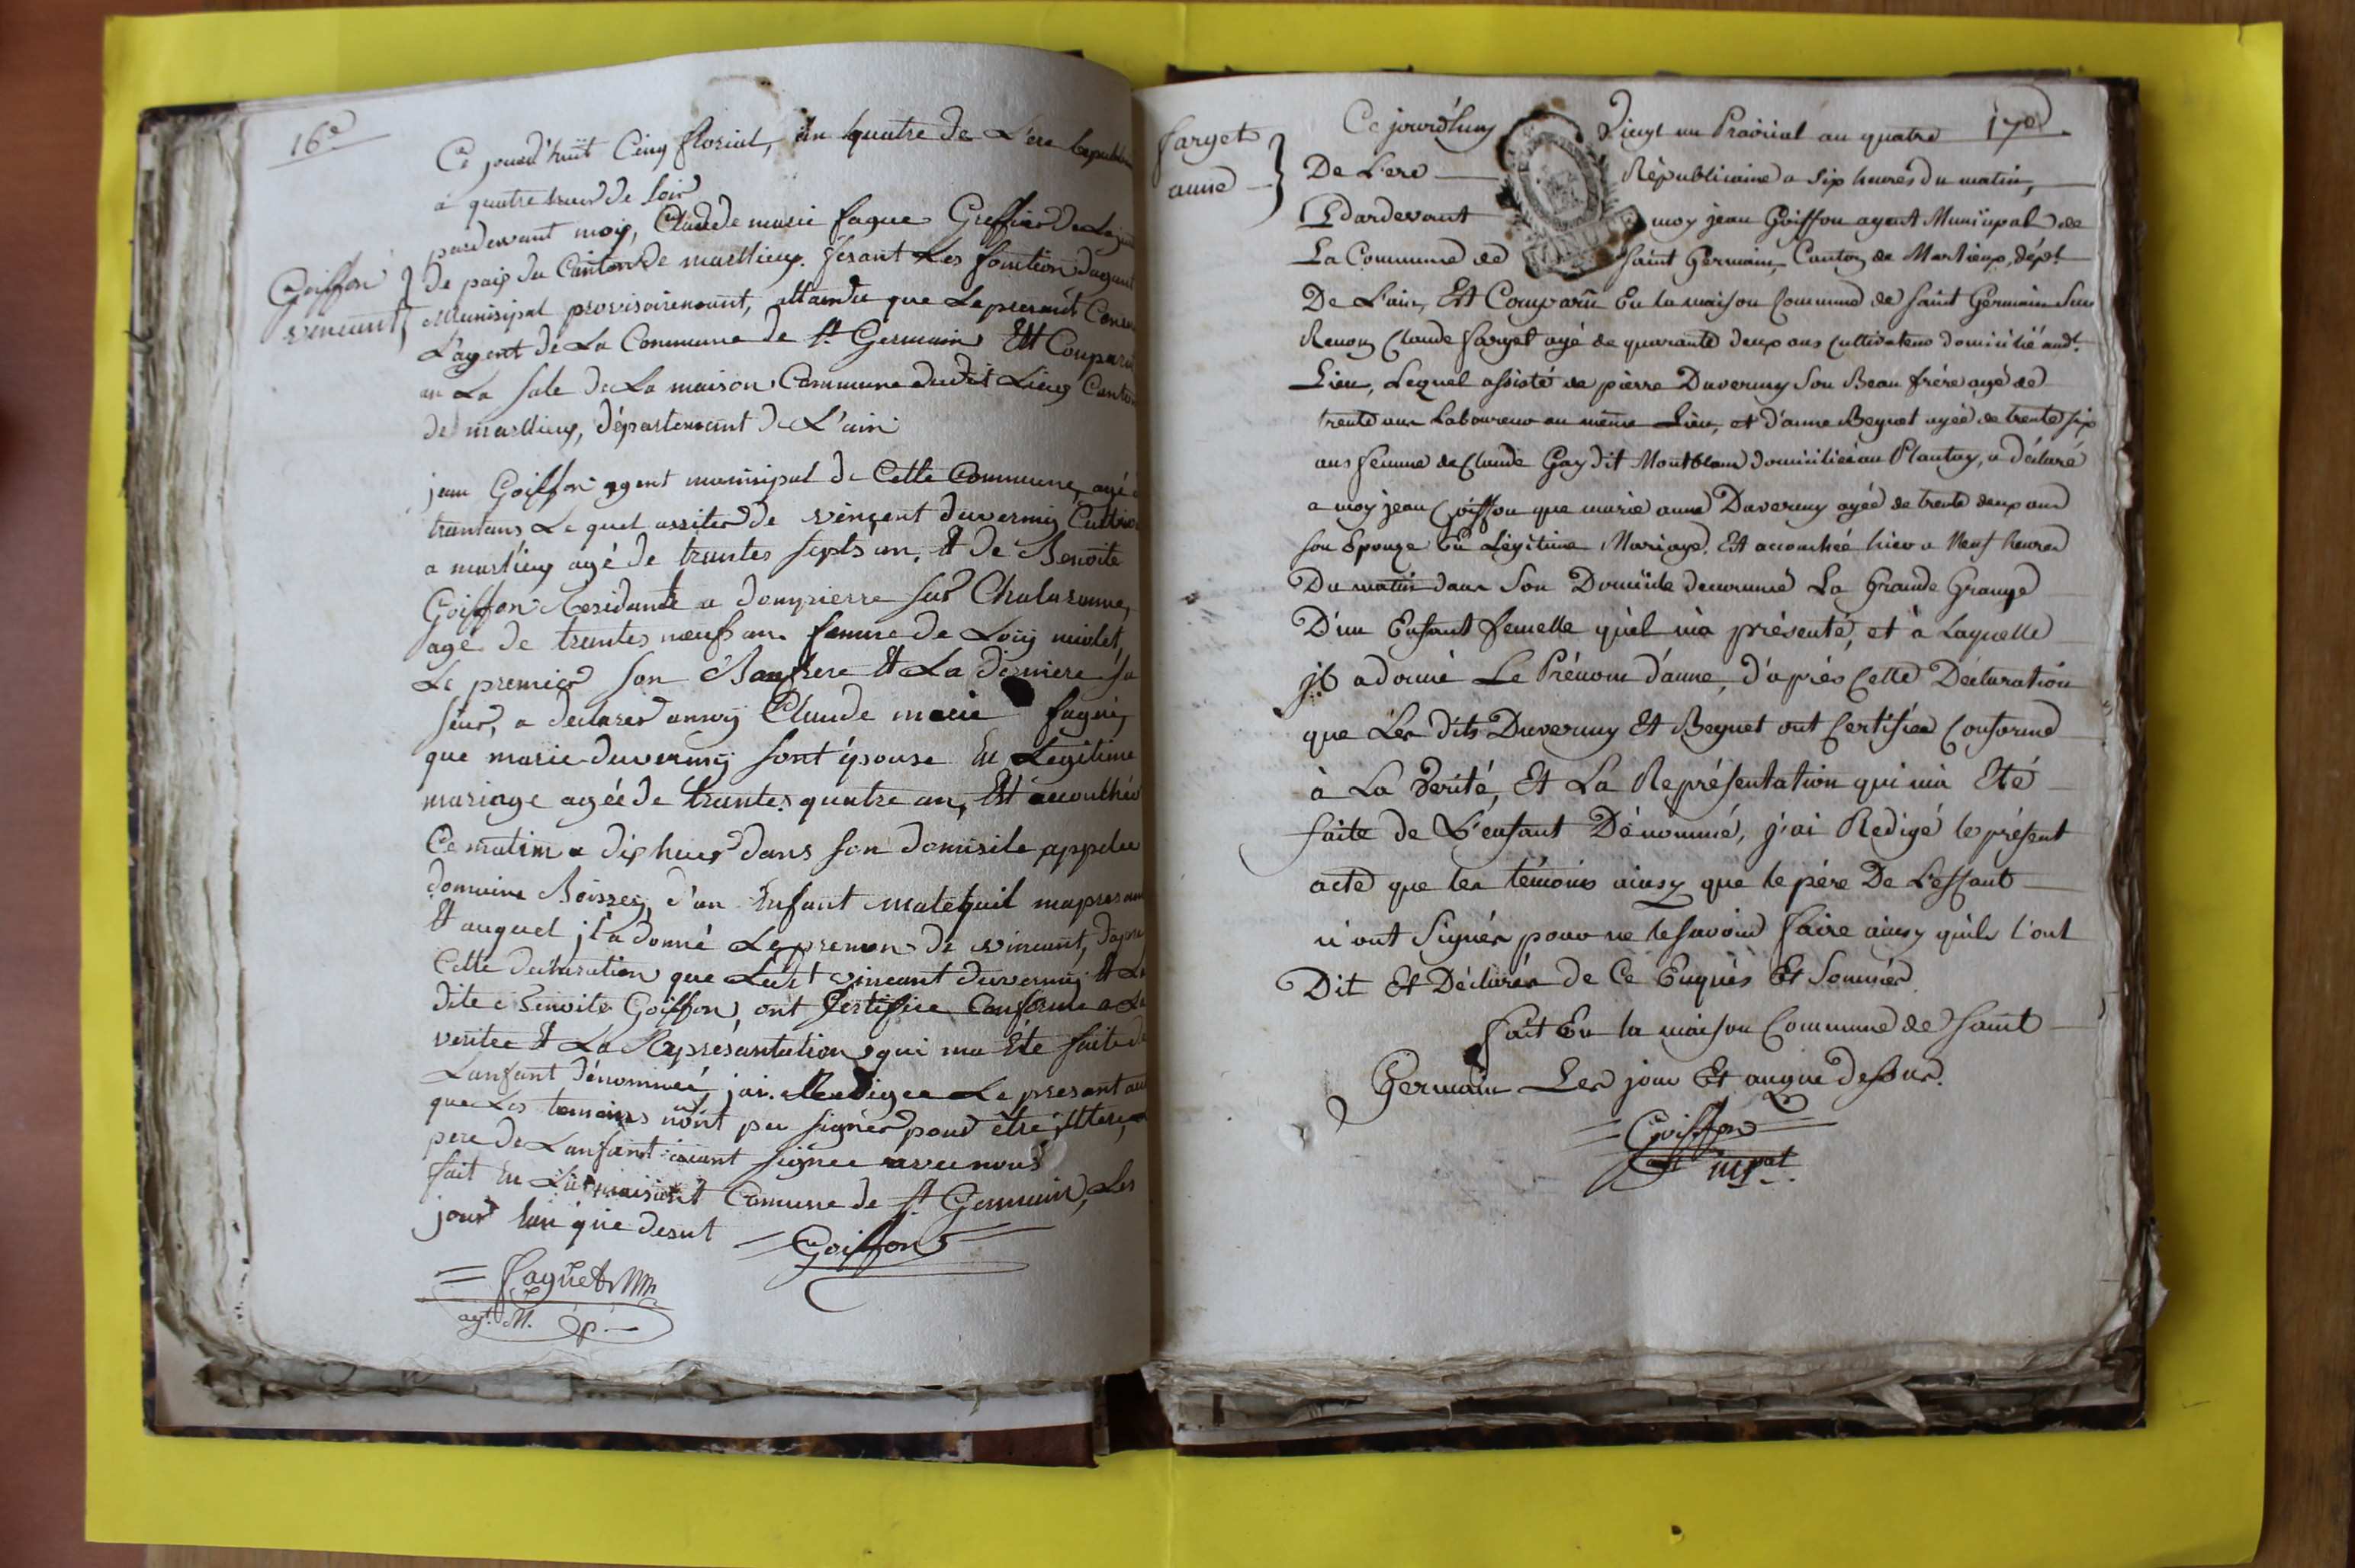 16e
Goiffon
vincent
Ce jourd'huit Cinq florial, an quatre de L'ere
a quatre heur de soir
pardevant moy, Claude marie fague Greffier de La
de paix du Canton de marllieux. fesant Les fonction dagent
Munisipal provisoirement, attandu que Le presant
L'agent de La Commune de st Germain Est
an La sale de La maison Commune dudit Lieux
de marllieux, département de L'ain
jean Goiffon agent munisipal de Cette Commune, agé
trantans Le quel assiter de vinçent duvernay
a marlieux agé de trantes septs an, et de Benoite
Goiffon Residante a dompierre sur Chalaronne,
agé de trantes neuf an femme de Loüy miolet,
Le premier son Baufrere et La derniere sa
seur, a declarer amoy Claude marie fague,
que marie duvernay sont épouse En Legitime
mariage agéé de trantes quatre an, Est accouchée
Ce matin a dix heur dans son domisile appelee
domaine Boisser, d'un Enfant male quil
Et auquel jl a donné Le prenon de vincent,
Cette declaration que Ledit vincent duvernay et La
dite Benoite Goiffon, ont Certifiee Conforme a La
veritee et La Represantation qui ma Ete faite de
Lanfant dénommeé, jai Redigee Le presant
que Les temoins nont peu signer pour être jlltere,
pere de Lanfant aiant signee avec nous
fait En La maisont Comune de st Germain, Les
jour et an que desut
Goiffon
faguet
agt. M. p.
farget
anne
17e
Ce jourd'huy Vingt un Prairial an quatre
De L'ere Républicaine a six heures du matin,
Pardevant moy jean Goiffon agent Municipal de
La Commune de saint Germain, Canton de Marlieux, dépt.
De L'ain, Est Comparu En la maison Commune de saint Germain sur
Renon Claude farget agé de quarante deux ans Cultivateur domicilié audt.
Lieu, Lequel assisté de pierre Duvernay son Beau frére agé de
trente ans Laboureur au même Lieu, et d'anne Beguet agéé de trente six
ans femme de Claude Gay dit Montblanc domiciliéé au Plantay, a déclaré
a moy jean Goiffon que marie anne Duvernay agéé de trente deux ans
son Epouze En Légitime Mariage, Est accouchéé hier a Neuf heures
Du matin dans son Domicile denommé La Grande Grange
D'un Enfant femelle qu'el m'a présenté, et à Laquelle
jl a donné Le Prénom d'anne, d'aprés Cette Déclaration
que Les dits Duvernay Et Beguet ont Certifiée Conforme
à La Verité, Et La Représentation qui m'a Eté
faite de L'enfant Dénommé, j'ai Redigé le présent
acte que les témoins ainsy que le pére De L'effant
n'ont signés pour ne le savoir faire ainsy quils l'ont
Dit Et Déclarés de Ce Enquis Et Sommés
fait En la maison Commune de saint
Germain Les jour Et an que dessus.
Goiffon
agt mpal.